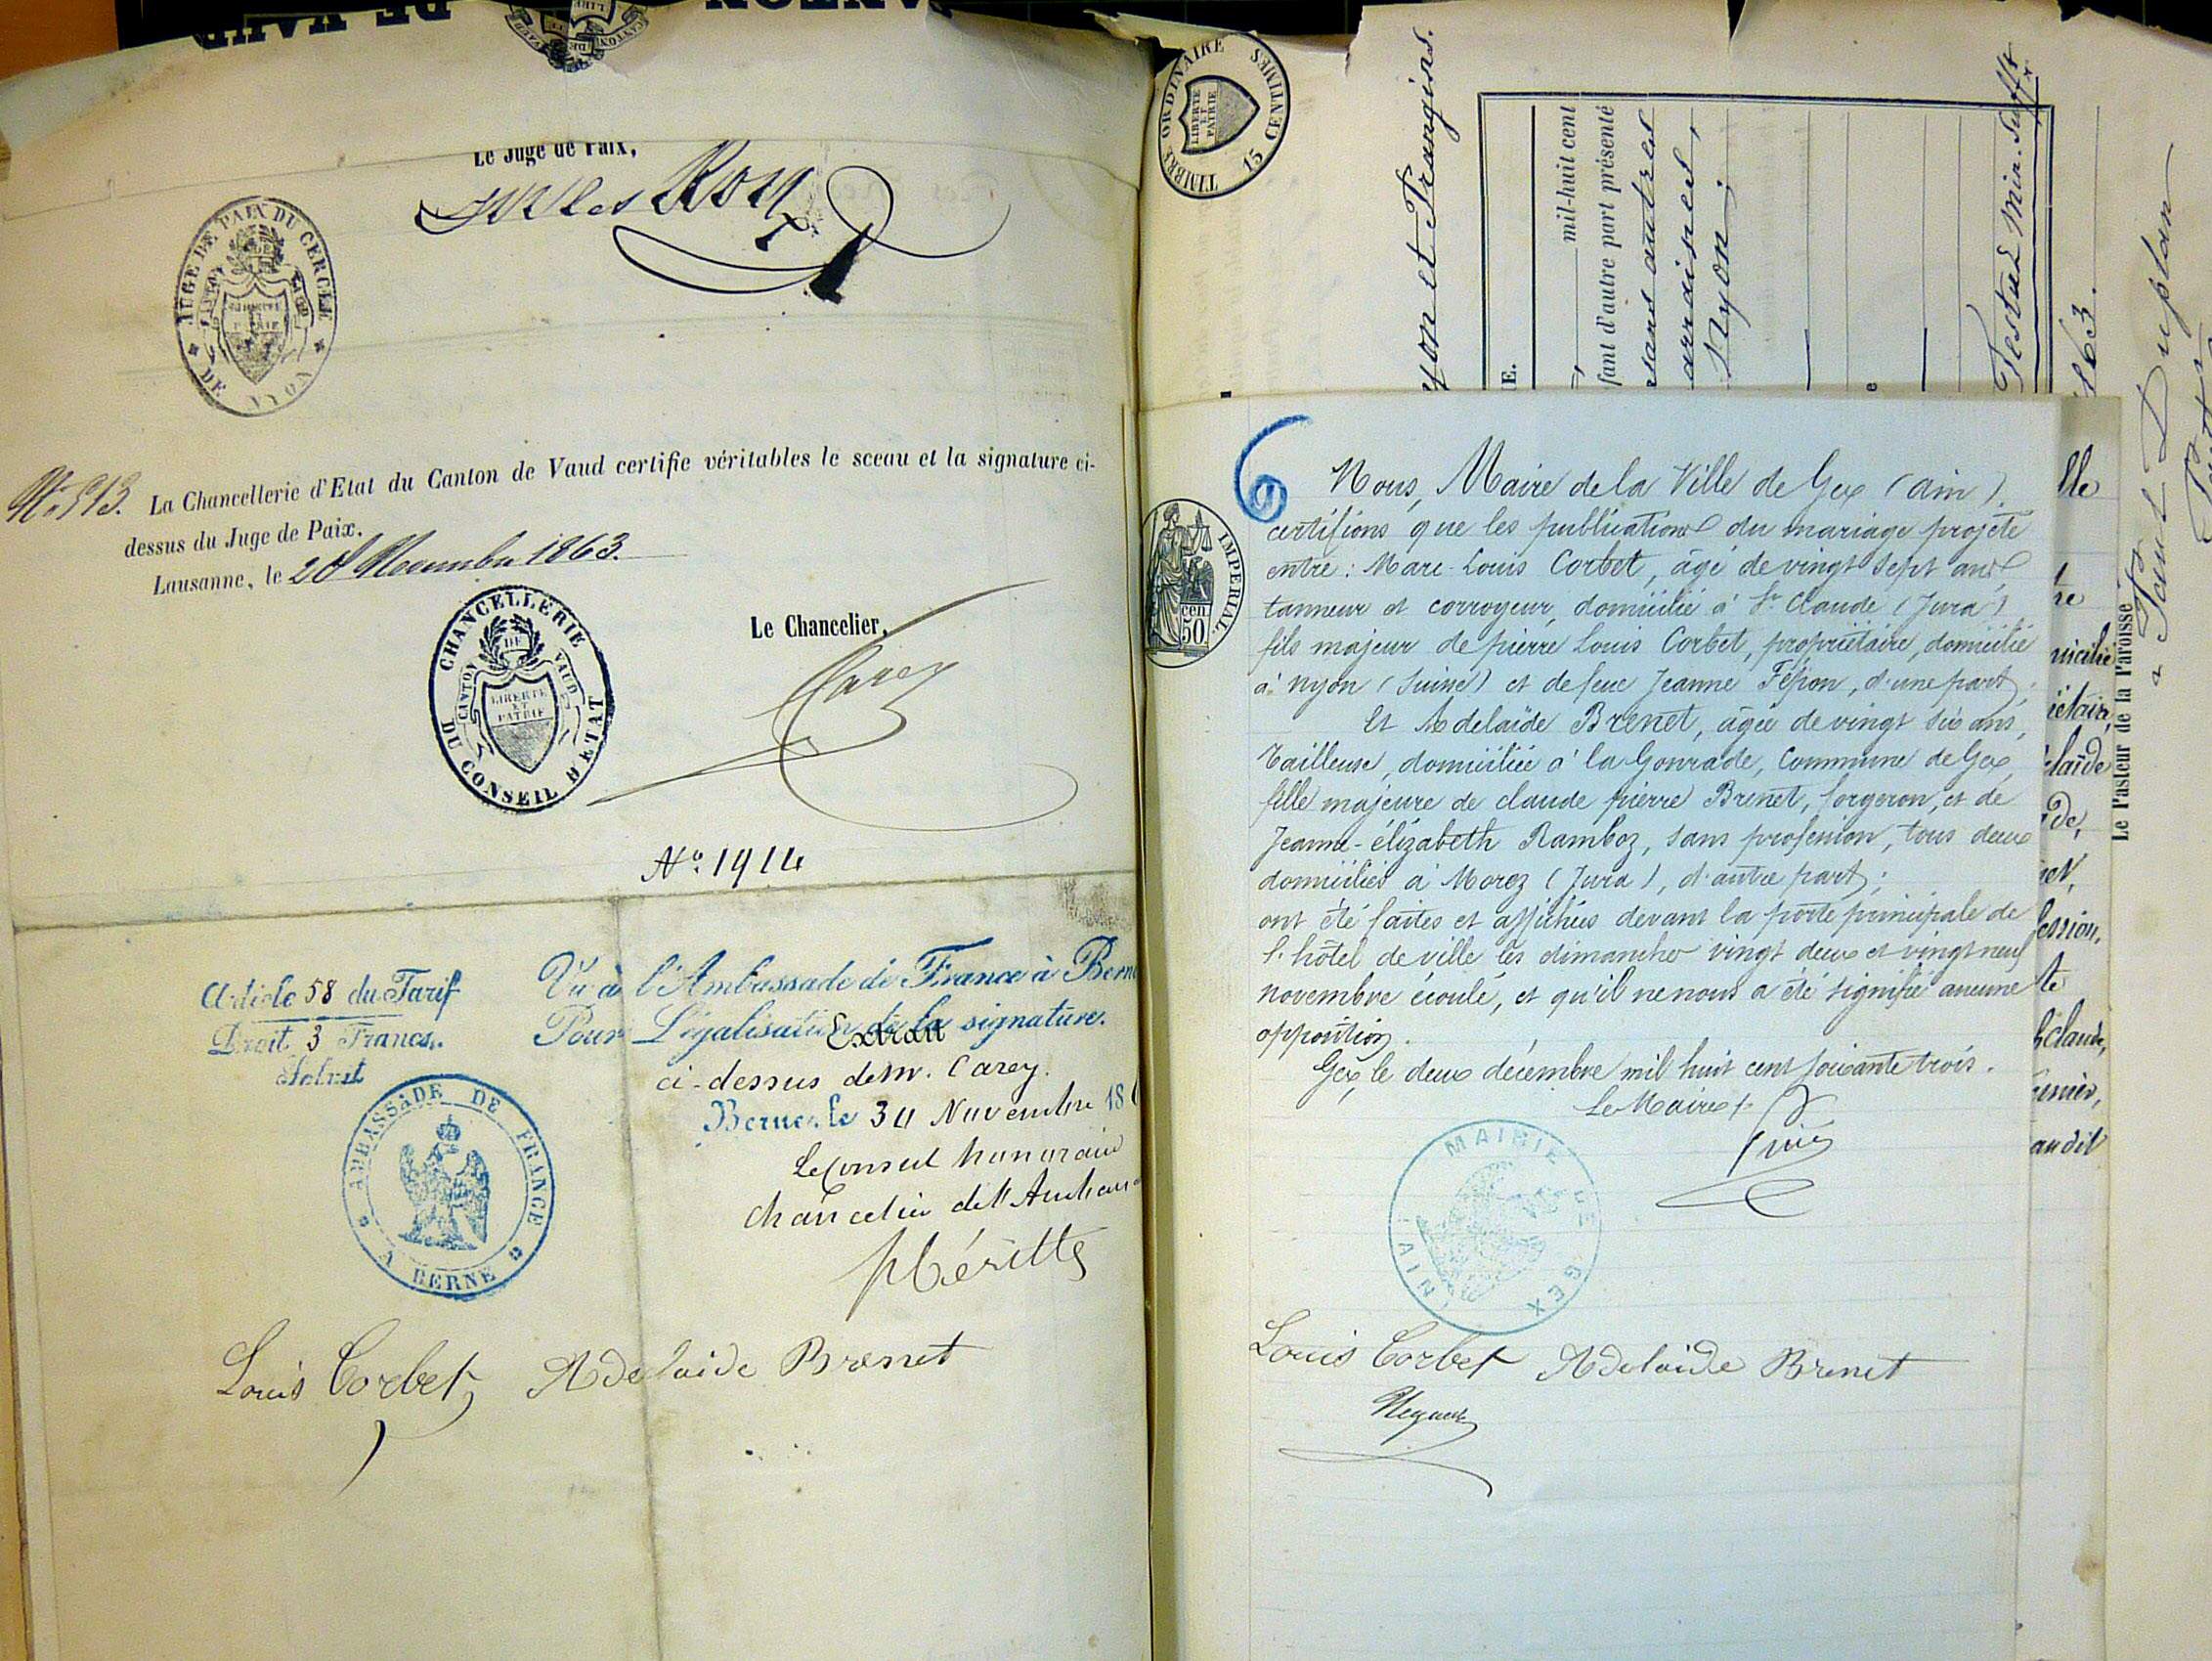 Le Juge de Paix,
Jules Roy
JUGE DE PAIX DU CERCLE DE NYON
CANTON DE VAUD
LIBERTÉ ET PATRIE
N° 513. La Chancellerie d'Etat du Canton de Vaud certifie véritables le sceau et la signature ci-
dessus du Juge de Paix.
Lausanne, le 28 Novembre 1863.
CHANCELLERIE DU CONSEIL D'ETAT
CANTON DE VAUD
LIBERTÉ ET PATRIE
Le Chancelier,
Carey
N° 1914
Article 58 du Tarif
Droit 3 Francs.
Vu à l'Ambassade de France à Berne
Pour Légalisation de la signature.
Extrait
ci-dessus de M. Carey.
Berne, le 30 Novembre 186
Le Consul honoraire
Chancelier de l'Ambassade
AMBASSADE DE FRANCE A BERNE
Louis Corbet Adelaide Brenet
TIMBRE ORDINAIRE 15 CENTIMES
LIBERTÉ ET PATRIE
yon et Prangins.
E.
mil-huit cent
fant d'autre part présenté
sans autres
Nyon
1863.
Le Pasteur de la Paroisse
6
IMPERIAL
50 cen
Nous, Maire de la Ville de Gex (ain),
certifions que les publications du mariage projeté
entre : Marc-Louis Corbet, âgé de vingt sept ans,
tanneur et corroyeur, domicilié à St Claude (Jura)
fils majeur de pierre Louis Corbet, propriétaire, domicilié
à Nyon (Suisse) et de feue Jeanne , d'une part,
Et Adelaïde Brenet, âgée de vingt six ans,
Tailleuse, domiciliée à la Gonrade, Commune de Gex,
fille majeure de claude pierre Brenet, forgeron, et de
Jeanne-élizabeth Ramboz, sans profession, tous deux
domiciliés à Morez (Jura), d'autre part;
ont été faites et affichées devant la porte principale de
l'hôtel de ville les dimanches vingt deux et vingt neuf
novembre écoulé, et qu'il ne nous a été signifié aucune
opposition.
Gex, le deux décembre mil huit cent soixante trois.
Le Maire
MAIRIE DE GEX (AIN)
Louis Corbet Adelaide Brenet